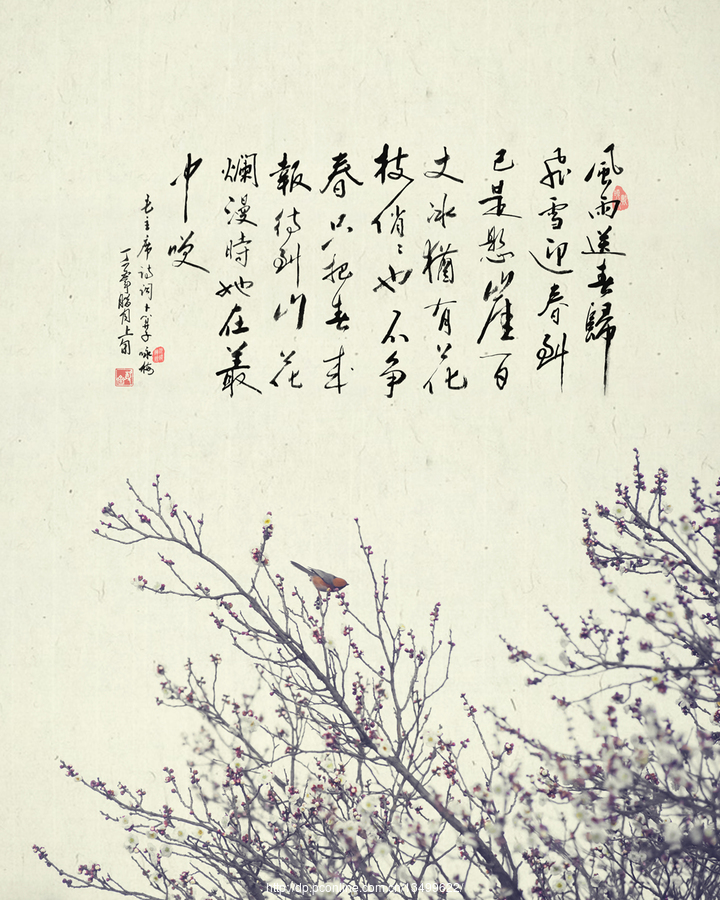 風雨送春歸
飛雪迎春到
已是懸崖百
丈冰猶有花
枝俏〻也不争
春只把春來
報待到山花
爛漫時她在叢
中咲
毛主席诗词卜算子咏梅
丁亥年腊月上旬
http://dp.pconline.com.cn/13499622/